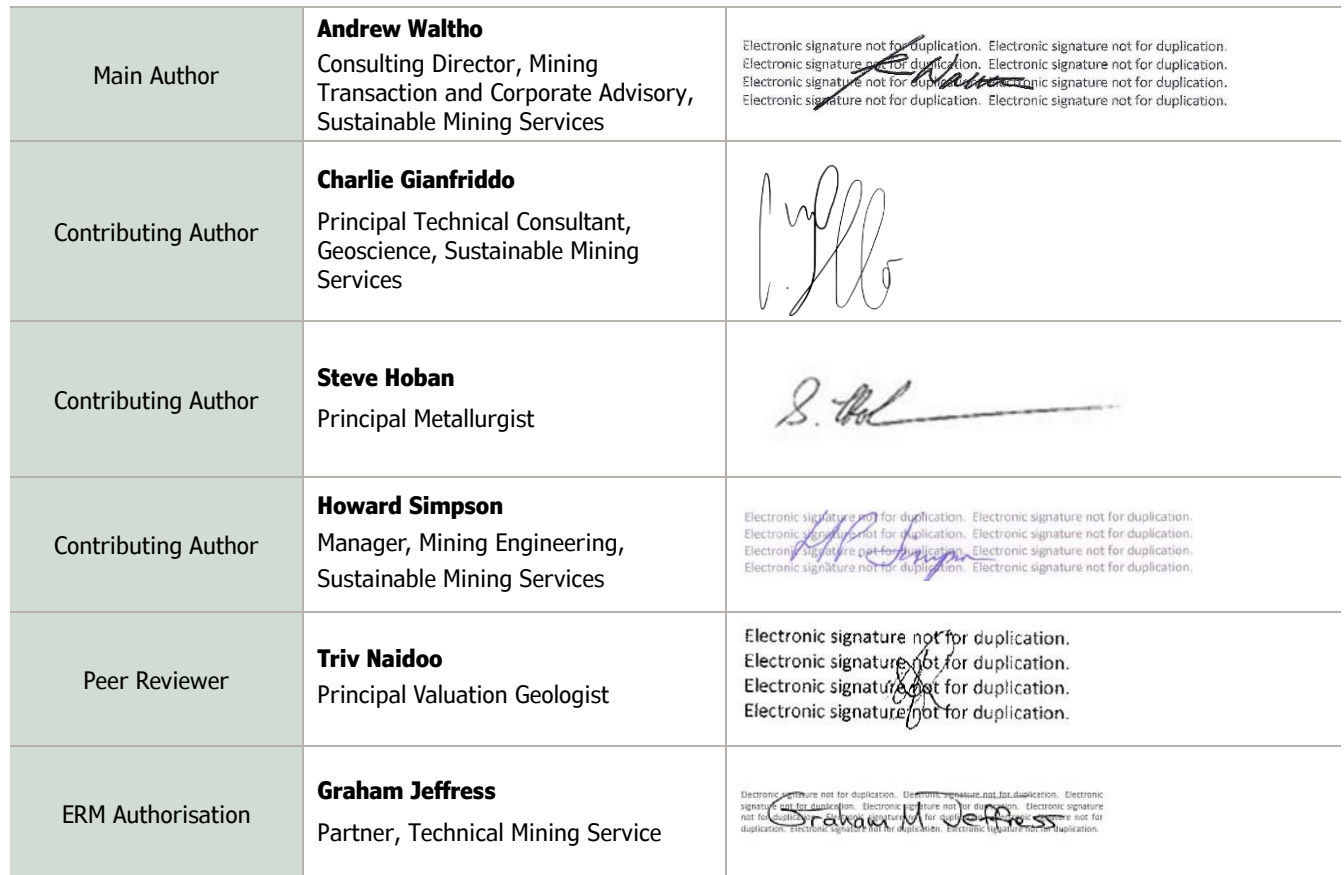 Main Author
Andrew Waltho
Consulting Director, Mining
Transaction and Corporate Advisory,
Sustainable Mining Services
Electronic signature not for duplication. Electronic signature not for duplication.
Electronic signature not for duplication. Electronic signature not for duplication.
Electronic signature not for duplication. Electronic signature not for duplication.
Electronic signature not for duplication. Electronic signature not for duplication.
Contributing Author
Charlie Gianfriddo
Principal Technical Consultant,
Geoscience, Sustainable Mining
Services
Contributing Author
Steve Hoban
Principal Metallurgist
S.
Contributing Author
Howard Simpson
Manager, Mining Engineering,
Sustainable Mining Services
Electronic signature not for duplication. Electronic signature not for duplication.
Electronic signature not for duplication. Electronic signature not for duplication.
Electronic signature not for duplication. Electronic signature not for duplication.
Electronic signature not for duplication. Electronic signature not for duplication.
Peer Reviewer
Triv Naidoo
Principal Valuation Geologist
Electronic signature not for duplication.
Electronic signature not for duplication.
Electronic signature not for duplication.
Electronic signature not for duplication.
ERM Authorisation
Graham Jeffress
Partner, Technical Mining Service
Electronic signature not for duplication. Electronic signature not for duplication. Electronic
signature not for duplication. Electronic signature not for duplication. Electronic signature
not for duplication. Electronic signature not for duplication. Electronic signature not for
duplication. Electronic signature not for duplication. Electronic signature not for duplication.
Graham M Jeffress